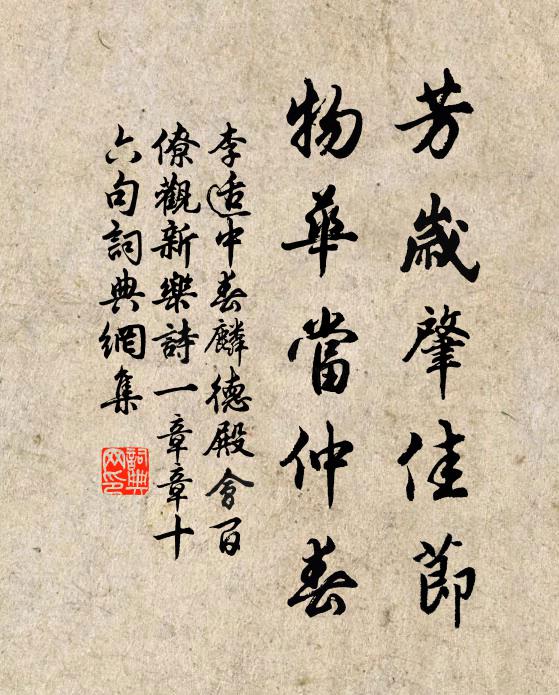 芳歲肇佳節
物華當仲春
李适中春麟德殿會百
僚觀新樂詩一章章十
六句詞典網集
詞典網印